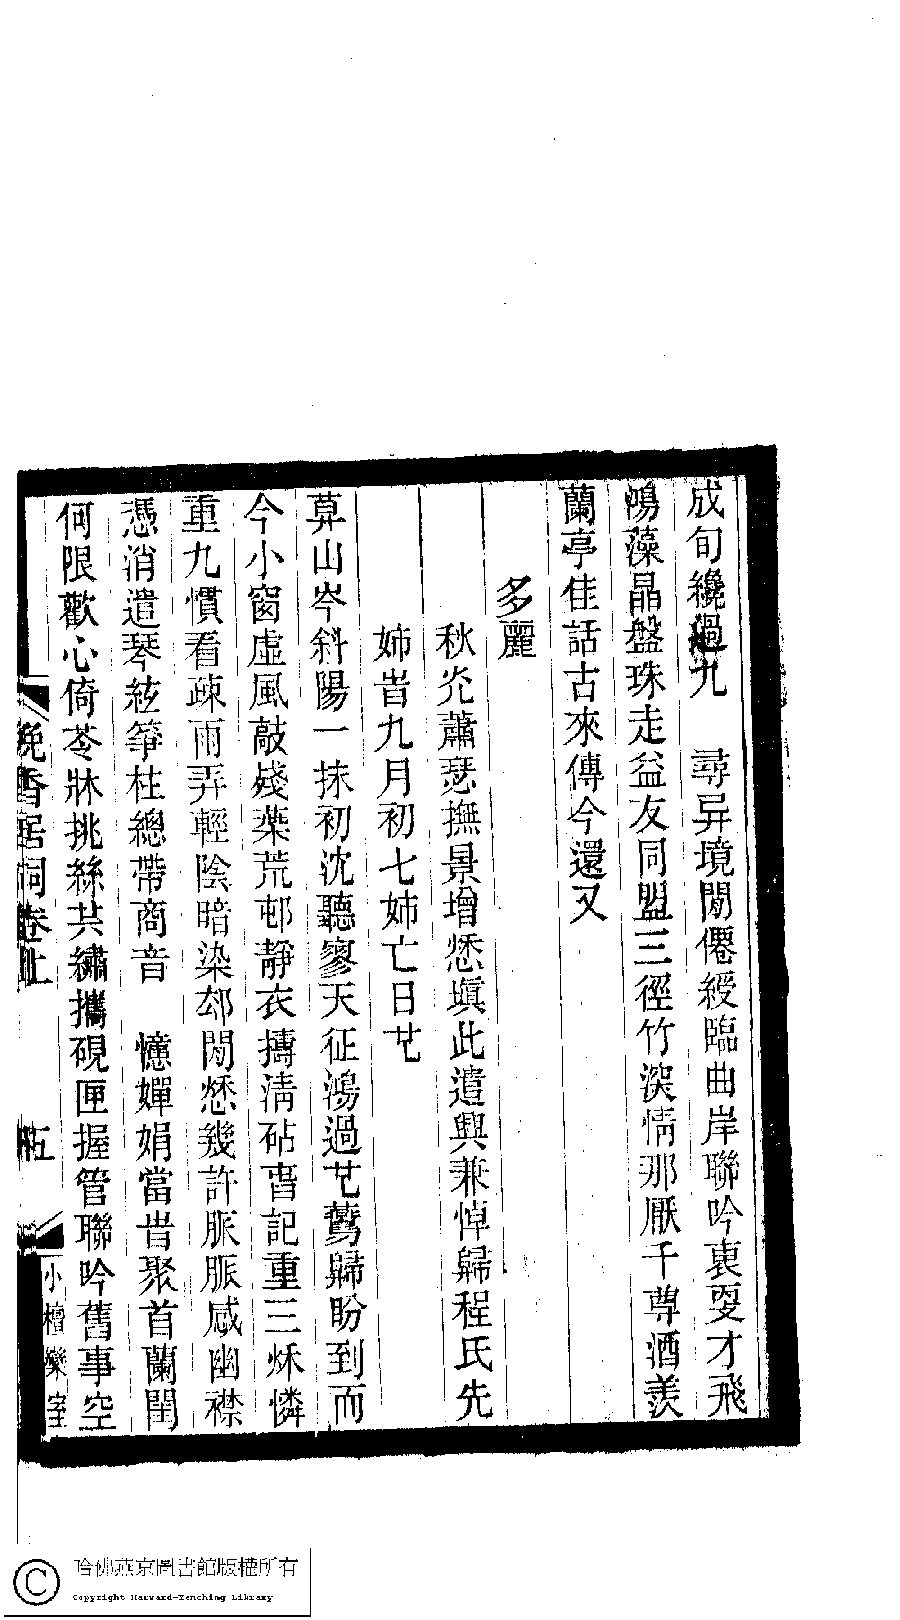 成旬纔過九　尋异境閒僊綬臨曲岸聯吟衷耍才飛
鴻藻晶盤珠走益友同盟三徑竹深情那厭千尊酒羨
蘭亭佳話古來傳今還又
多麗
秋光蕭瑟撫景增愁塡此遣興兼悼歸程氏先
姊旹九月初七姊亡日也
算山岑斜陽一抹初沈聽寥天征鴻過也驚歸盼到而
今小窗虛風敲殘葉荒邨靜衣擣淸砧旹記重三烁憐
重九慣看疎雨弄輕陰暗染却閒愁幾許脈脈感幽襟
憑消遣琴絃箏柱總帶商音　憶嬋娟當旹聚首蘭閨
何限歡心倚苓牀挑絲共繡攜硯匣握管聯吟舊事空
晚香居詞卷上
五
小檀欒室
哈佛燕京圖書館版權所有
Copyright Harvard-Yenching Library